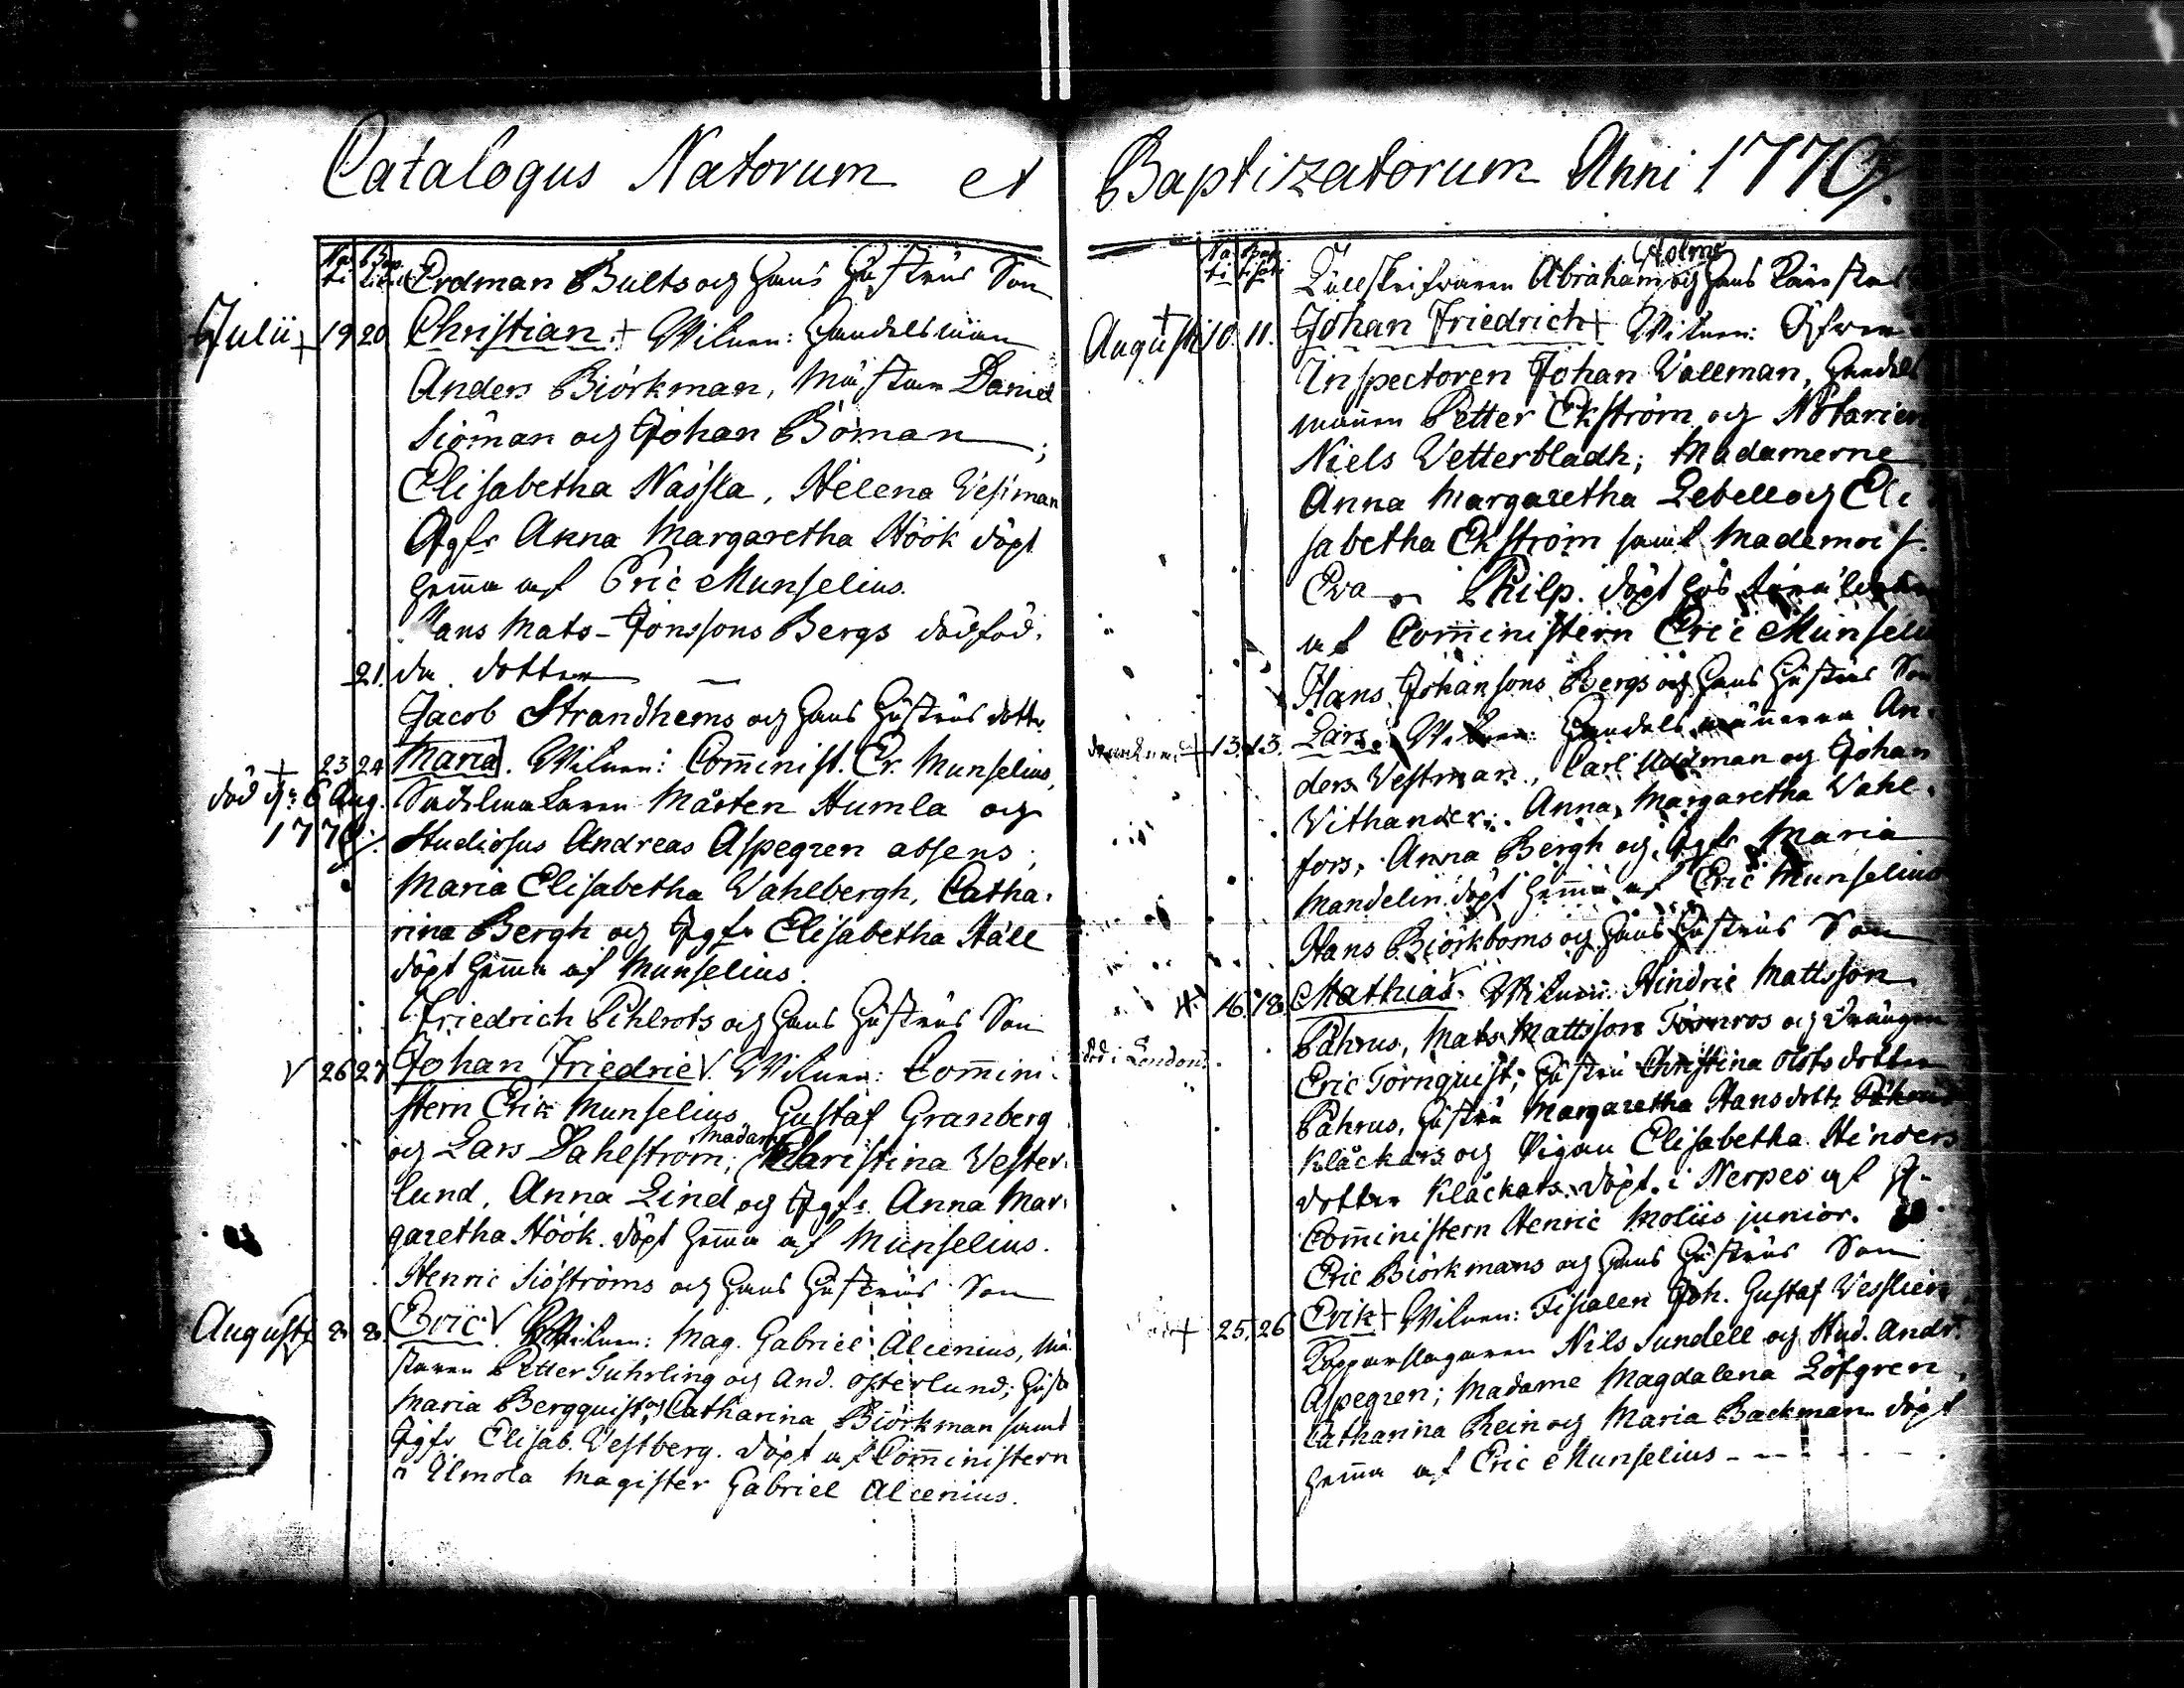 Catalogus Natorum et
Na Bap
ti tizati Erdman Bults och hans hustrus Son
Julii + 19 20 Christian. + Witnen: handelsman
Anders Biörkman, Mästarn Daniel
Siöman och Johan Böman ;
Elisabetha Nässla, Helena Vesiman
Jgfr Anna Margaretha Höök döpt
hemma af Eric Munselius.
Hans Mats-Jonssons Bergs dödföd.
21. da dotter
Jacob Strandhems och hans hustrus dotter
+ 23 24 Maria. Witnen: Comminist. Er. Munselius,
död d: 6 Aug. Mårten Humla och
1770/. Studiosus Andreas Aspegren absens;
Maria Elisabetha Wahlbergh, Catha-
rina Bergh och Jgfr Elisabetha Häll
döpt hemma af Munselius.
Friedrich Pihlrots och hans hustrus Son
V 26 27 Johan Friedric V. Witnen: Commini-
stern Erik Munselius, Gustaf Granberg
och Lars Dahlström; Madam Christina Vester-
lund, Anna Lind och Jgfr. Anna Mar-
garetha Höök. döpt hemma af Munselius.
Henric Siöströms och hans hustrus Son
Augusti 2. 2. Eric V. Witnen: Mag. Gabriel Alcenius, Mä-
staren Petter Tuhrling och And. Österlund; hustr.
Maria Bergquist, och Catharina Biörkman samt
Jgfr Elisab. Vestberg. döpt af Comministern
i Ilmola Magister Gabriel Alcenius.
Baptizatorum Anni 1770/.
Na Bap
ti tisati Tullskrifvaren Abraham Holms och hans Kärestas
Augusti + 10. 11. Johan Friedrich + Witnen: Öfver
Inspectoren Johan Vallman, handels
mannen Petter Ekström och Notarien
Niels Vetterbladh; Madamerne
Anna Margaretha Lebell och Eli
sabetha Ekström samt Mademois.
Eva Philp. döpt hos
af Comministern Eric Munseliu
Hans Johansons Bergs och hans hustrus Son
+ 13. 13. Lars. Witnen: handelsmännerna An-
ders Vestman, Carl Uddman och Johan
Vithander; Anna Margaretha Wahl-
fors, Anna Bergh och Jgfr Maria
Mandelin. döpt hemma af Eric Munselius
Hans Biörkboms och hans hustrus Son
+ 16. 18. Mathias. Witnen: Hindric Mattsson
död i London. Påhrus, Mats Mattsson Törnros och drängen
Eric Törnquist; hustru Christina Olofs dotter
Påhrus, hustru Margaretha Hansdottr
Klåckars och Pigan Elisabetha Hinders
dotter Klåckars. döpt i Nerpes af H.
Comministern Henric Moliis junior.
Eric Biörkmans och hans hustrus Son
+ 25. 26 Erik + Witnen: Fiscalen Joh. Gustaf Vesslien
Kopparslagaren Nils Sundell och Stud. Andr.
Aspegren; Madame Magdalena Löfgren,
Catharina Rein och Maria Backman. döpt
hemma af Eric Munselius - - - - -